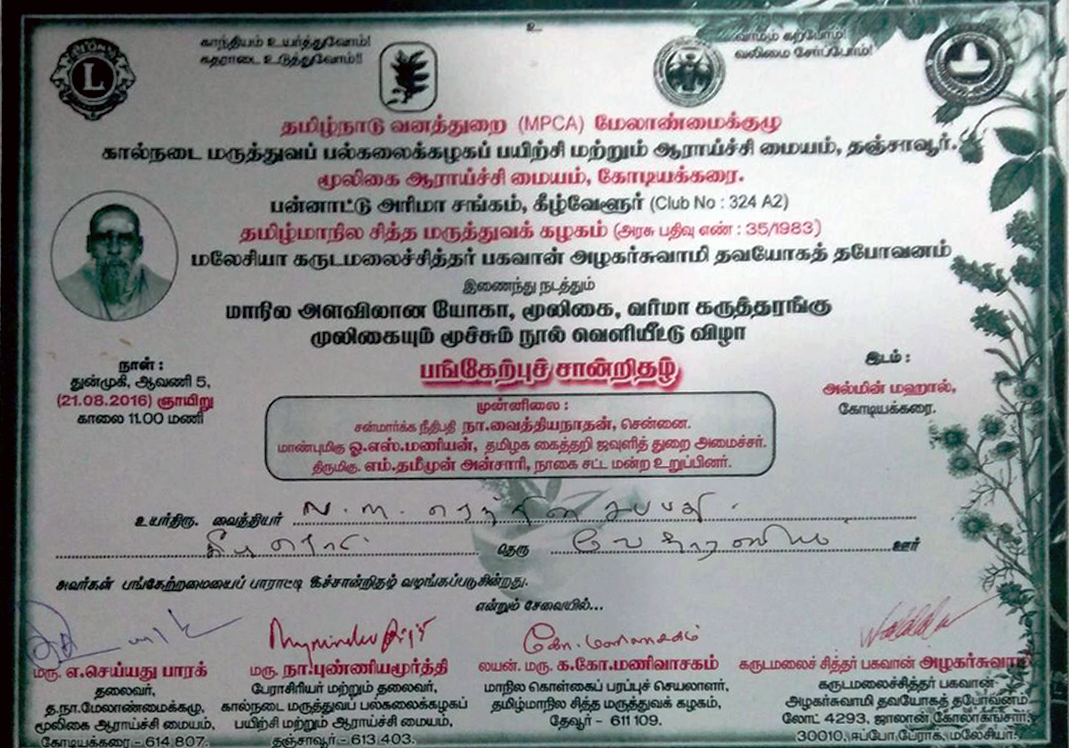 உ
காந்தியம் உயர்த்துவோம்!
கதராடை உடுத்துவோம்!!
வர்மம் கற்போம்!
வலிமை சேர்ப்போம்!
தமிழ்நாடு வனத்துறை (MPCA) மேலாண்மைக்குழு
கால்நடை மருத்துவப் பல்கலைக்கழகப் பயிற்சி மற்றும் ஆராய்ச்சி மையம், தஞ்சாவூர்.
மூலிகை ஆராய்ச்சி மையம், கோடியக்கரை.
பன்னாட்டு அரிமா சங்கம், கீழ்வேளூர் (Club No : 324 A2)
தமிழ்மாநில சித்த மருத்துவக் கழகம் (அரசு பதிவு எண் : 35/1983)
மலேசியா கருடமலைச்சித்தர் பகவான் அழகர்சுவாமி தவயோகத் தபோவனம்
இணைந்து நடத்தும்
மாநில அளவிலான யோகா, மூலிகை, வர்மா கருத்தரங்கு
மூலிகையும் மூச்சும் நூல் வெளியீட்டு விழா
பங்கேற்புச் சான்றிதழ்
நாள் :
துன்முகி, ஆவணி 5,
(21.08.2016) ஞாயிறு
காலை 11.00 மணி
இடம் :
அல்மின் மஹால்,
கோடியக்கரை.
முன்னிலை :
சன்மார்க்க நீதிபதி நா.வைத்தியநாதன், சென்னை.
மாண்புமிகு ஓ.எஸ்.மணியன், தமிழக கைத்தறி ஜவுளித் துறை அமைச்சர்.
திருமிகு. எம்.தமீமுன் அன்சாரி, நாகை சட்ட மன்ற உறுப்பினர்.
உயர்திரு. வைத்தியர்
தெரு வேதாரணியம் ஊர்
அவர்கள் பங்கேற்றமையைப் பாராட்டி இச்சான்றிதழ் வழங்கப்படுகின்றது.
என்றும் சேவையில்...
மரு. எ.செய்யது பாரக்
தலைவர்,
த.நா.மேலாண்மைக்கழு,
மூலிகை ஆராய்ச்சி மையம்,
கோடியக்கரை - 614 807.
மரு. நா.புண்ணியமூர்த்தி
பேராசிரியர் மற்றும் தலைவர்,
கால்நடை மருத்துவப் பல்கலைக்கழகப்
பயிற்சி மற்றும் ஆராய்ச்சி மையம்,
தஞ்சாவூர் - 613 403.
கோ. மணிவாசகம்
லயன். மரு. க.கோ.மணிவாசகம்
மாநில கொள்கைப் பரப்புச் செயலாளர்,
தமிழ்மாநில சித்த மருத்துவக் கழகம்,
தேவூர் - 611 109.
கருடமலைச் சித்தர் பகவான் அழகர்சுவாமி
கருடமலைச்சித்தர் பகவான்
அழகர்சுவாமி தவயோகத் தபோவனம்
லோட் 4293, ஜாலான்
30010, ஈப்போ பேராக், மலேசியா.